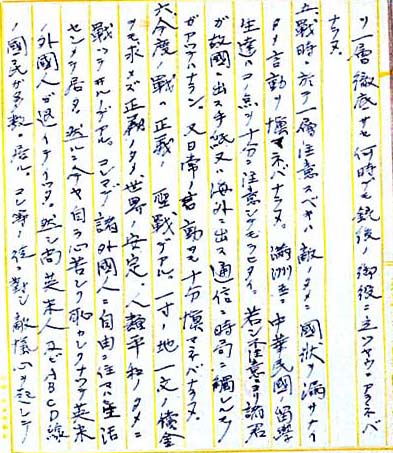 リ一層徹底サセ何時デモ銃後ノ御役ニ立ツヤウデアラネバ
ナラヌ。
五、戦時ニ於テ一層注意スベキハ敵ノタメニ國状ヲ漏サナイ
タメ言動ヲ慎マネバナラヌ。満洲國ヤ中華民國ノ留學
生達ハコノ点ヲ十分ニ注意シテモラヒタイ。若シ不注意ヨリ諸君
ガ故國ニ出ス手紙又ハ海外ニ出ス通信ニ時局ニ觸レルコト
ガアツテハナラン。又日常ノ言動モ十分慎マネバナラヌ。
六、今度ノ戦ハ正義ノ聖戦デアル。一寸ノ地一文ノ償金
ヲモ求メズ正義ノタメ、世界ノ安定、人類平和ノタメニ
戦ツテヰルノデアル。コレマデ諸外國人ニ自由ニ住マハセ生活
センテ居タ。然ルニ今ヤ自ラ心苦シク
外國人ガ退イテイツタ。然シ尚英米人及ビABCD線
ノ國民ガ多数ニ居ル。コレ等ノ徒ニ對シ敵愾心ヲ起シテ